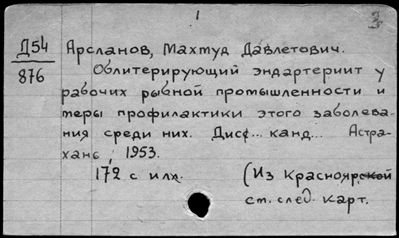 1
Д54
876
Арсланов, Махмуд Давлетович.
Облитерирующий эндартериит у
рабочих рыбной промышленности и
меры профилактики этого заболева-
ния среди них. Дисс... канд... Астра-
хань, 1953.
172 с илл. (Из Красноярской
см. след. карт.